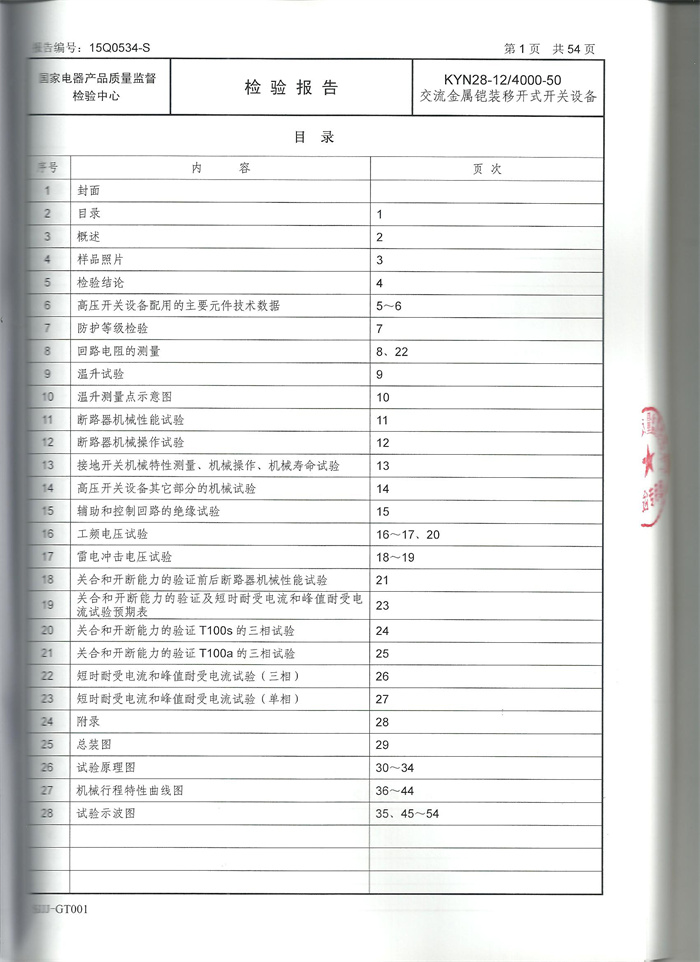 报告编号：15Q0534-S
第 1 页 共 54 页
国家电器产品质量监督
检验中心
检 验 报 告
KYN28-12/4000-50
交流金属铠装移开式开关设备
目 录
序号 内 容 页 次
1 封面
2 目录 1
3 概述 2
4 样品照片 3
5 检验结论 4
6 高压开关设备配用的主要元件技术数据 5～6
7 防护等级检验 7
8 回路电阻的测量 8、22
9 温升试验 9
10 温升测量点示意图 10
11 断路器机械性能试验 11
12 断路器机械操作试验 12
13 接地开关机械特性测量、机械操作、机械寿命试验 13
14 高压开关设备其它部分的机械试验 14
15 辅助和控制回路的绝缘试验 15
16 工频电压试验 16～17、20
17 雷电冲击电压试验 18～19
18 关合和开断能力的验证前后断路器机械性能试验 21
19 关合和开断能力的验证及短时耐受电流和峰值耐受电
流试验预期表 23
20 关合和开断能力的验证 T100s 的三相试验 24
21 关合和开断能力的验证 T100a 的三相试验 25
22 短时耐受电流和峰值耐受电流试验（三相） 26
23 短时耐受电流和峰值耐受电流试验（单相） 27
24 附录 28
25 总装图 29
26 试验原理图 30～34
27 机械行程特性曲线图 36～44
28 试验示波图 35、45～54
-GT001